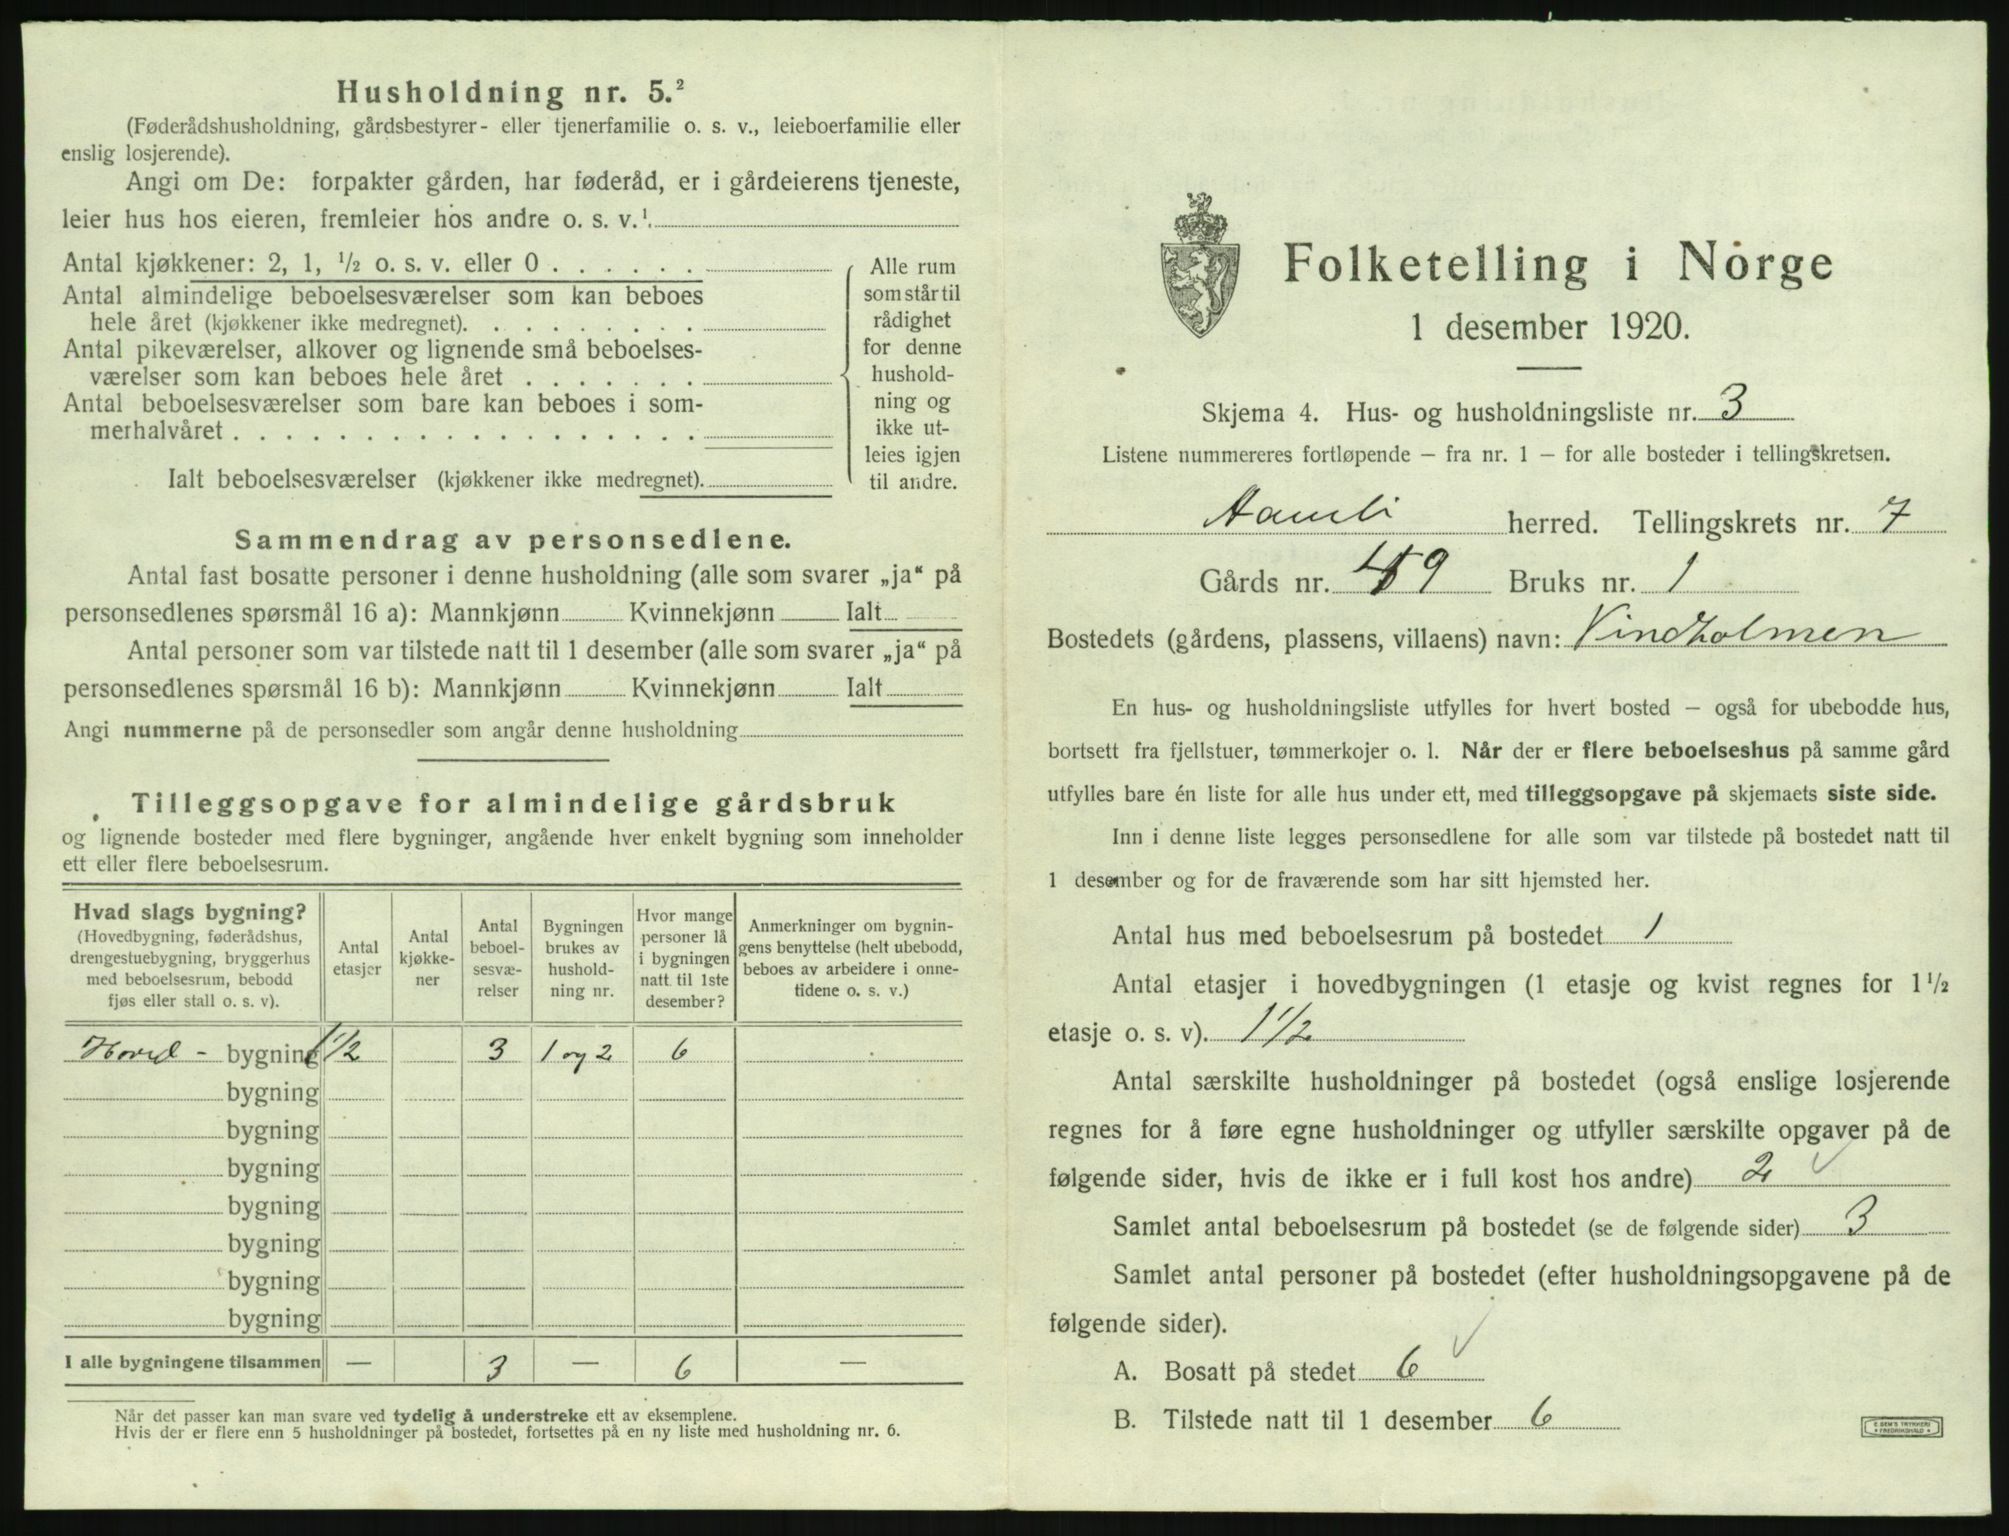 Husholdning nr. 5.²
(Føderådshusholdning, gårdsbestyrer- eller tjenerfamilie o. s. v., leieboerfamilie eller
enslig losjerende).
Angi om De: forpakter gården, har føderåd, er i gårdeierens tjeneste,
leier hus hos eieren, fremleier hos andre o. s. v.¹
Antal kjøkkener: 2, 1, ½ o. s. v. eller 0 . . . . . .
Antal almindelige beboelsesværelser som kan beboes
hele året (kjøkkener ikke medregnet). . . . . . . . .
Antal pikeværelser, alkover og lignende små beboelses-
værelser som kan beboes hele året . . . . . . .
Antal beboelsesværelser som bare kan beboes i som-
merhalvåret . . . . . . . . . . . . . . . . . .
Ialt beboelsesværelser (kjøkkener ikke medregnet).
Alle rum
som står til
rådighet
for denne
hushold-
ning og
ikke ut-
leies igjen
til andre.
Sammendrag av personsedlene.
Antal fast bosatte personer i denne husholdning (alle som svarer „ja“ på
personsedlenes spørsmål 16 a): Mannkjønn Kvinnekjønn Ialt
Antal personer som var tilstede natt til 1 desember (alle som svarer „ja“ på
personsedlenes spørsmål 16 b): Mannkjønn Kvinnekjønn Ialt
Angi nummerne på de personsedler som angår denne husholdning
Tilleggsopgave for almindelige gårdsbruk
og lignende bosteder med flere bygninger, angående hver enkelt bygning som inneholder
ett eller flere beboelsesrum.
Hvad slags bygning?
(Hovedbygning, føderådshus,
drengestuebygning, bryggerhus
med beboelsesrum, bebodd
fjøs eller stall o. s. v).
Antal
etasjer
Antal
kjøkke-
ner
Antal
beboel-
sesvæ-
relser
Bygningen
brukes av
hushold-
ning nr.
Hvor mange
personer lå
i bygningen
natt til 1ste
desember?
Anmerkninger om bygnin-
gens benyttelse (helt ubebodd,
beboes av arbeidere i onne-
tidene o. s. v.)
Hoved - bygning 1½ 3 1 og 2 6
bygning
bygning
bygning
bygning
bygning
bygning
bygning
I alle bygningene tilsammen — 3 — 6 —
Når det passer kan man svare ved tydelig å understreke ett av eksemplene.
Hvis der er flere enn 5 husholdninger på bostedet, fortsettes på en ny liste med husholdning nr. 6.
Folketelling i Norge
1 desember 1920.
Skjema 4. Hus- og husholdningsliste nr. 3
Listene nummereres fortløpende – fra nr. 1 – for alle bosteder i tellingskretsen.
Aamli herred. Tellingskrets nr. 7
Gårds nr. 49 Bruks nr. 1
Bostedets (gårdens, plassens, villaens) navn: Vindholmen
En hus- og husholdningsliste utfylles for hvert bosted – også for ubebodde hus,
bortsett fra fjellstuer, tømmerkojer o. l. Når der er flere beboelseshus på samme gård
utfylles bare én liste for alle hus under ett, med tilleggsopgave på skjemaets siste side.
Inn i denne liste legges personsedlene for alle som var tilstede på bostedet natt til
1 desember og for de fraværende som har sitt hjemsted her.
Antal hus med beboelsesrum på bostedet 1
Antal etasjer i hovedbygningen (1 etasje og kvist regnes for 1½
etasje o. s. v). 1½
Antal særskilte husholdninger på bostedet (også enslige losjerende
regnes for å føre egne husholdninger og utfyller særskilte opgaver på de
følgende sider, hvis de ikke er i full kost hos andre) 2
Samlet antal beboelsesrum på bostedet (se de følgende sider) 3
Samlet antal personer på bostedet (efter husholdningsopgavene på de
følgende sider).
A. Bosatt på stedet 6
B. Tilstede natt til 1 desember 6
E. SEM'S TRYKKERI
FREDRIKSHALD